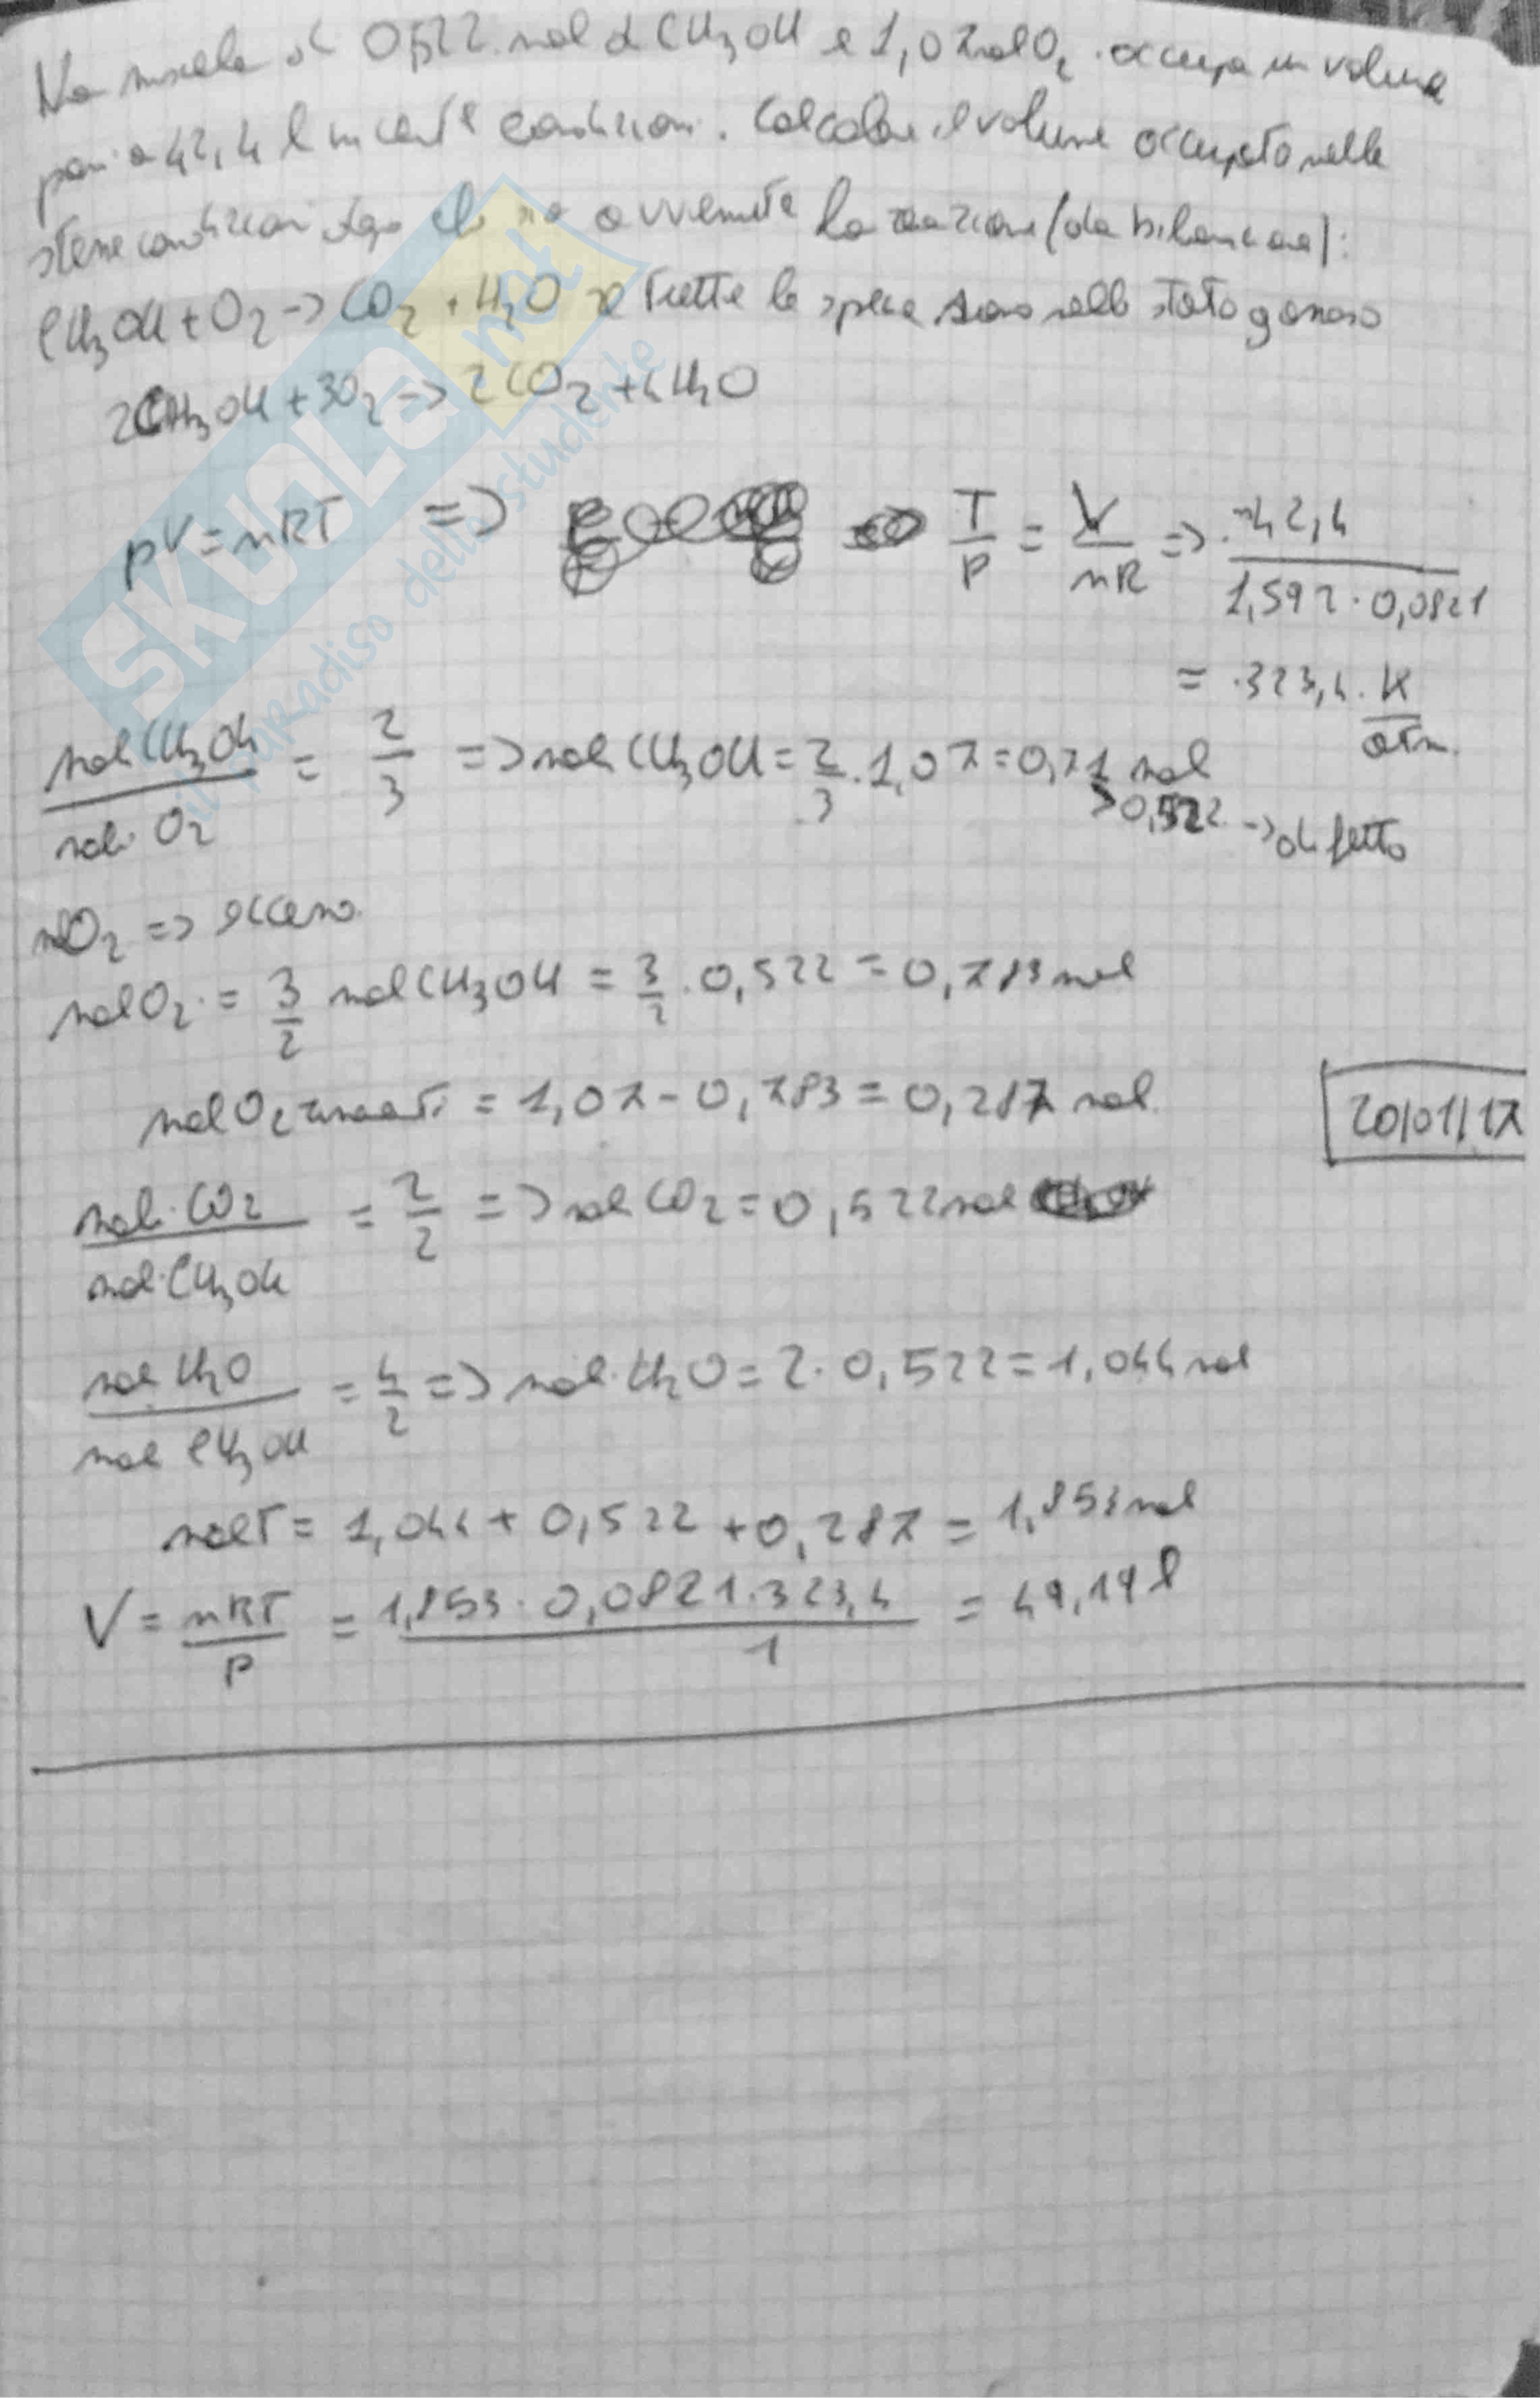 Una miscela di 0,522 mol di CH3OH e 1,07 mol O2 occupa un volume
pari a 42,4 l in certe condizioni. Calcolare il volume occupato nelle
stesse condizioni dopo che sia avvenuta la reazione (da bilanciare):
CH3OH + O2 -> CO2 + H2O se tutte le specie sono nello stato gassoso
2CH3OH + 3O2 -> 2CO2 + 4H2O
pV = nRT => T/P = V/nR => 42,4 / 1,592 · 0,0821
= 323,4 K/atm
mol CH3OH / mol O2 = 2/3 => mol CH3OH = 2/3 · 1,07 = 0,71 mol
> 0,522 -> difetto
nO2 => eccesso
mol O2 = 3/2 mol CH3OH = 3/2 · 0,522 = 0,783 mol
mol O2 rimasti = 1,07 - 0,783 = 0,287 mol
20/01/17
mol CO2 / mol CH3OH = 2/2 => mol CO2 = 0,522 mol
mol H2O / mol CH3OH = 4/2 => mol H2O = 2 · 0,522 = 1,044 mol
molT = 1,044 + 0,522 + 0,287 = 1,853 mol
V = nRT/P = 1,853 · 0,0821 · 323,4 / 1 = 49,19 l
SKUOLA.net
il paradiso dello studente